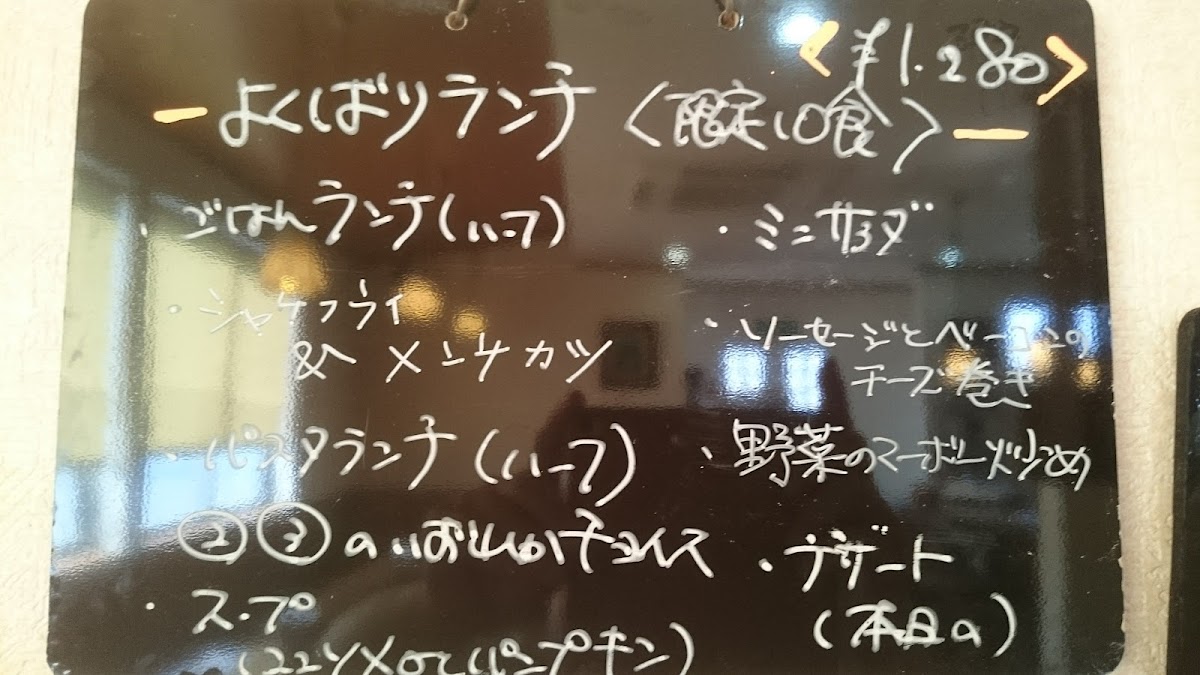 <¥1.280>
ーよくばりランチ〈限定10食〉ー
・ごはんランチ(ハーフ)
・シャケフライ
&メンチカツ
・パスタランチ(ハーフ)
②③のいずれかチョイス
・スープ
(コンソメorパンプキン)
・ミニサラダ
・ソーセージとベーコンの
チーズ巻き
・野菜のマーボー炒め
・デザート
(本日の)